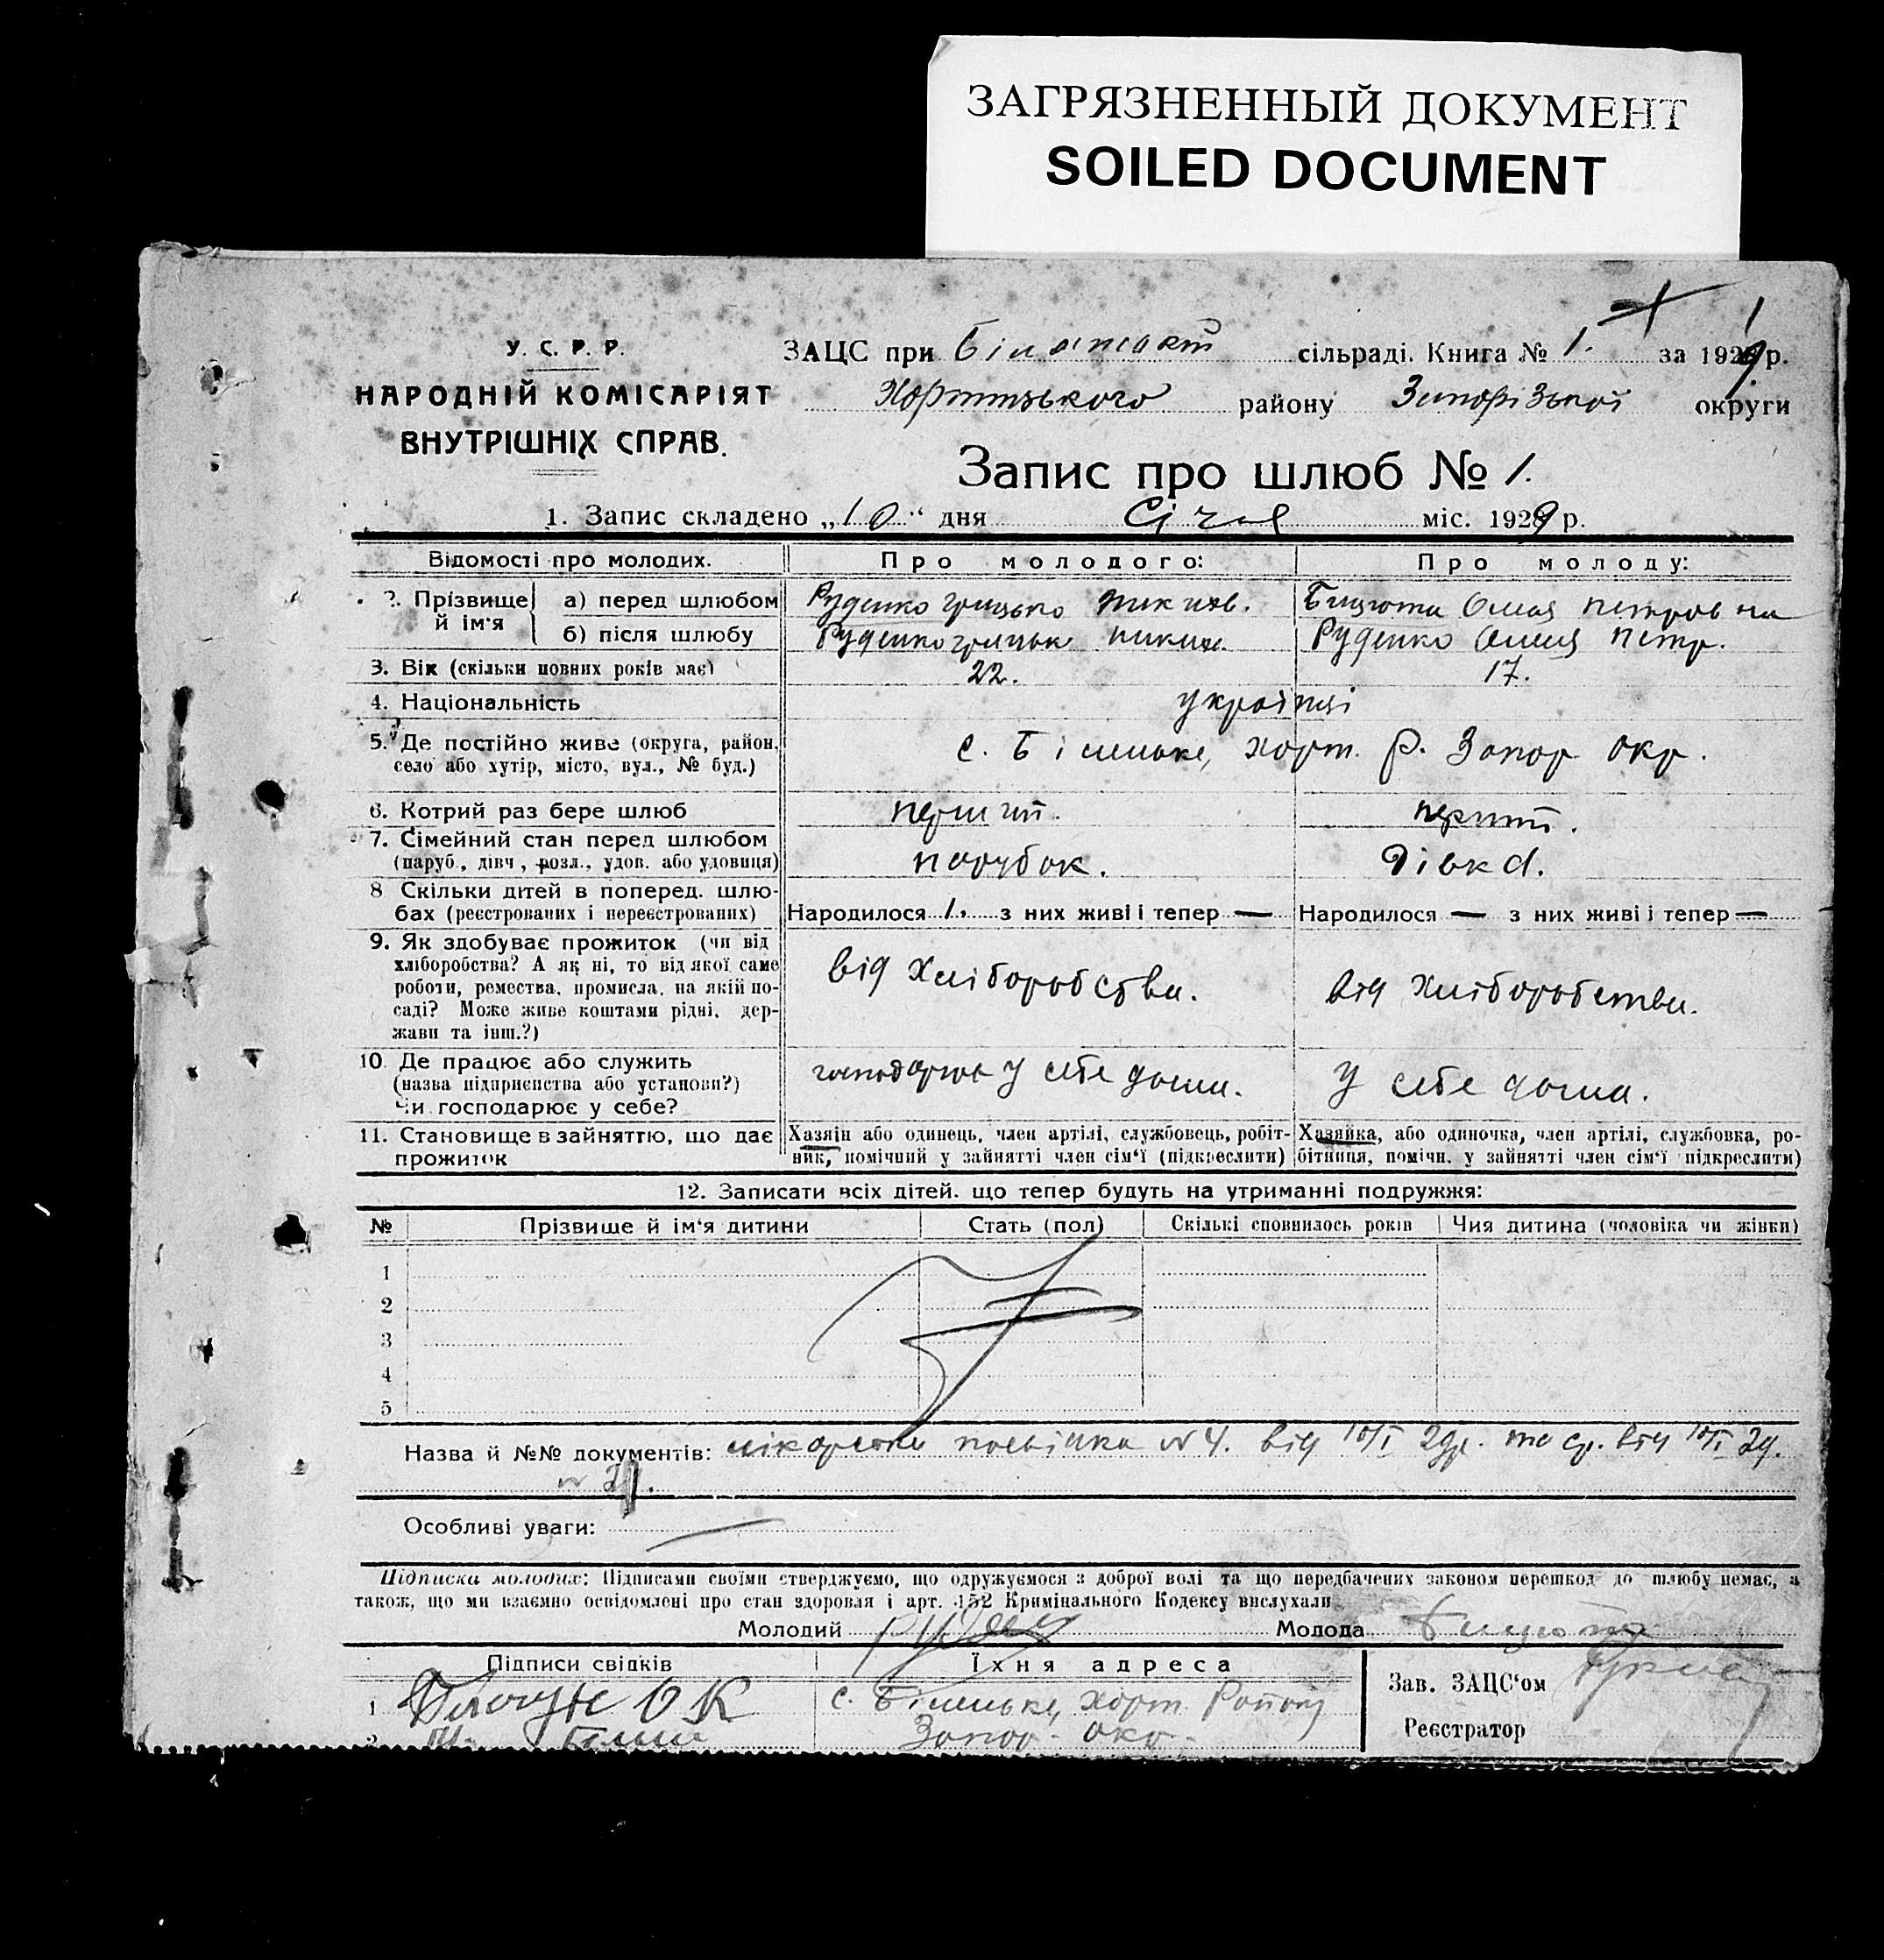 ЗАГРЯЗНЕННЫЙ ДОКУМЕНТ
SOILED DOCUMENT
У. С. Р. Р.
НАРОДНІЙ КОМІСАРІЯТ
ВНУТРІШНІХ СПРАВ.
ЗАЦС при сільраді. Книга № 1. за 1929 р.
Хортицького району Запорізької округи
Запис про шлюб № 1.
1. Запис складено „10“ дня Січня міс. 1929 р.
Відомості про молодих. Про молодого: Про молоду:
2. Прізвище й ім'я а) перед шлюбом Руденко Грицько Петровна
б) після шлюбу Руденко Руденко Петр.
3. Вік (скільки повних років має) 22. 17.
4. Національність українці
5. Де постійно живе (округа, район, село або хутір, місто, вул., № буд.) с. Біленьке, Хорт. р. Запор окр.
6. Котрий раз бере шлюб перший. перший.
7. Сімейний стан перед шлюбом (паруб., дівч, розл., удов. або удовиця) парубок. дівка.
8 Скільки дітей в поперед. шлюбах (реєстрованих і нереєстрованих) Народилося 1. з них живі і тепер — Народилося — з них живі і тепер —
9. Як здобуває прожиток (чи від хліборобства? А як ні, то від якої саме роботи, ремества, промисла, на якій посаді? Може живе коштами рідні, держави та інш.?) від хліборобства. від хліборобства.
10. Де працює або служить (назва підприємства або установи?) Чи господарює у себе? господарює у себе дома. у себе дома.
11. Становище в зайняттю, що дає прожиток Хазяїн або одинець, член артілі, службовець, робітник, помічний у зайнятті член сім'ї (підкреслити) Хазяйка, або одиночка, член артілі, службовка, робітниця, помічн. у зайнятті член сім'ї підкреслити)
12. Записати всіх дітей. що тепер будуть на утриманні подружжя:
№ Прізвище й ім'я дитини Стать (пол) Скількі сповнилось років Чия дитина (чоловіка чи жінки)
1
2
3
4
5
Назва й №№ документів: посвідка № 4. від 10/I 29р. та від 10/I 29.
Особливі уваги: —
Підписка молодих: Підписами своїми стверджуємо, що одружуємося з доброї волі та що передбачених законом перешкод до шлюбу немає, а
також, що ми взаємно освідомлені про стан здоровля і арт. 152 Кримінального Кодексу вислухали
Молодий Молода
Підписи свідків Їхня адреса
Зав. ЗАЦС'ом
1 с. Біленьке, Хорт. Району
Реєстратор
2 Запор. окр.